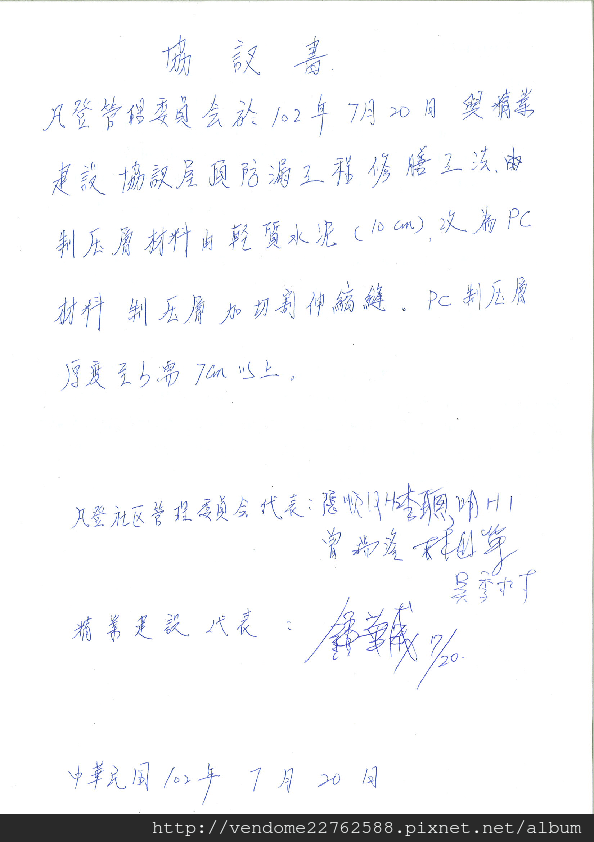 協設書.
凡登管理委員会於102年7月20日與精業
建設協設屋頂防漏工程修膳工法,由
制压層材料由乾質水泥(10cm),改為PC
材料制压層加切割伸縮縫。PC制压層
厚度至少需7cm以上。
凡登社区管理委員会代表:
精業建設代表:
7/20.
中華民国102年7月20日
http://vendome22762588.pixnet.net/album